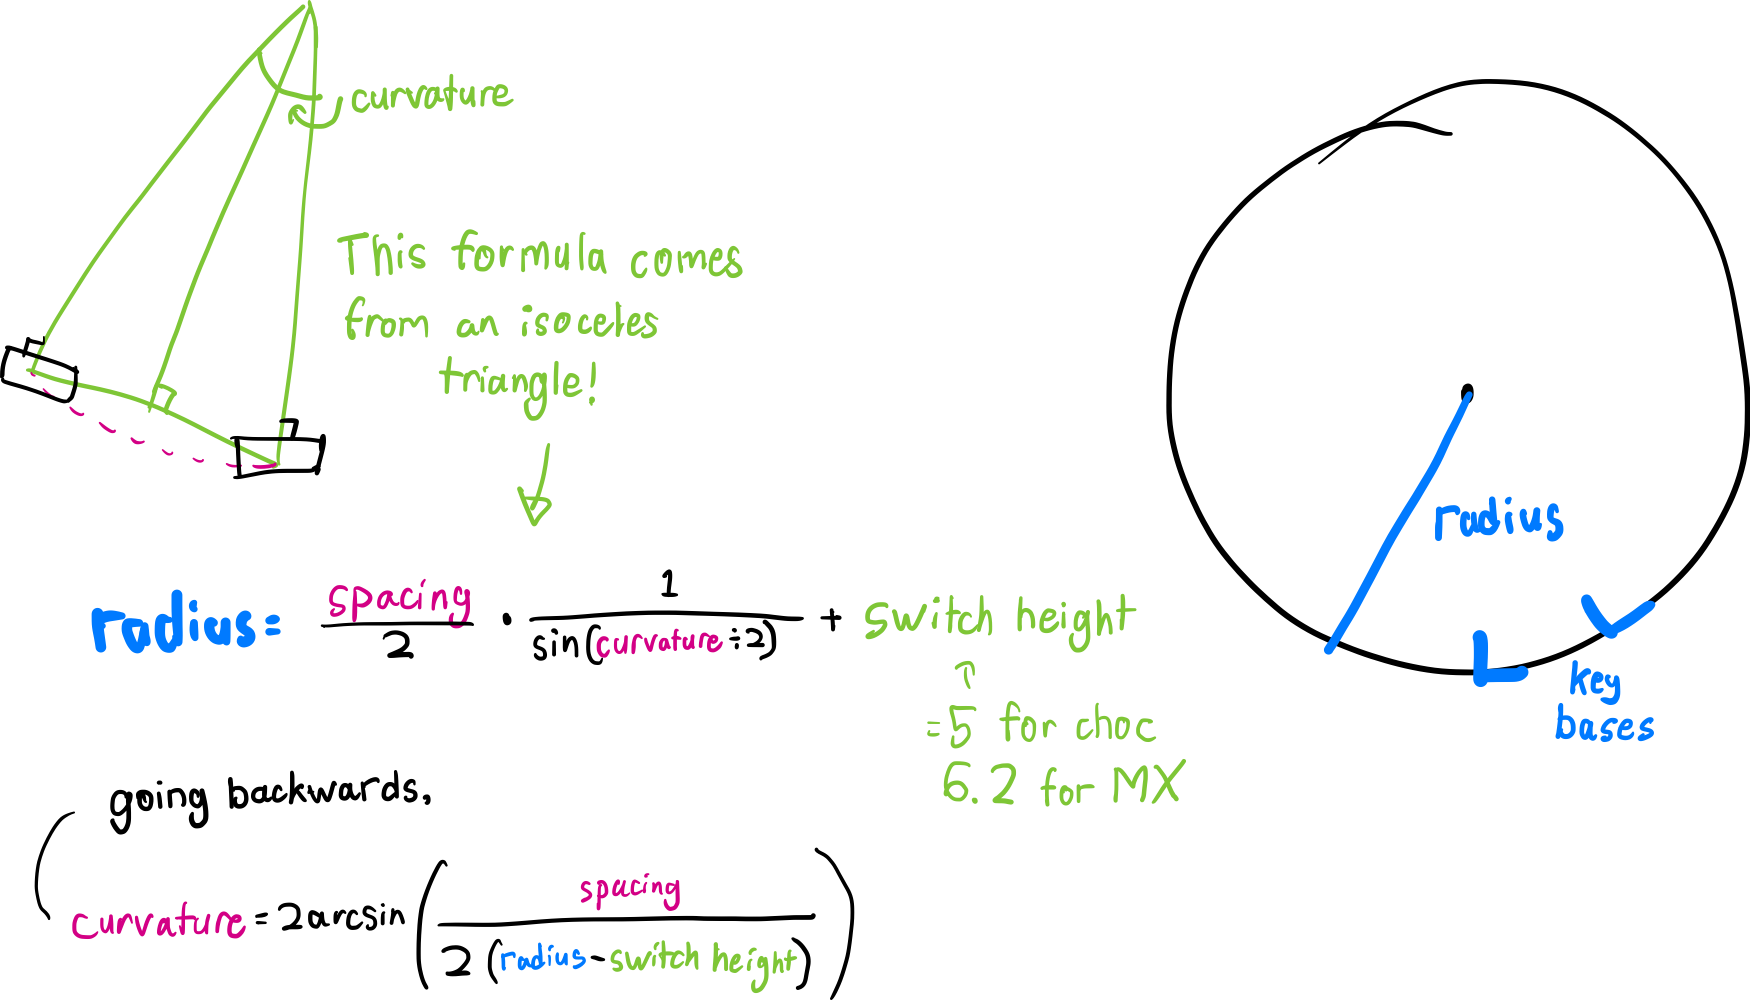 curvature
This formula comes
from an isoceles
triangle!
radius = spacing/2 · 1/sin(curvature÷2) + switch height
=5 for choc
6.2 for MX
radius
key
bases
going backwards,
curvature = 2arcsin(spacing/2(radius-switch height))